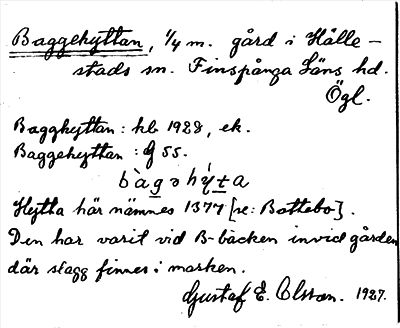 Baggehyttan, 1/4 m. gård i Hälle-
stads sn. Finspånga Läns hd.
Ögl.
Bagghyttan: hb 1928, ek.
Baggehyttan: G 55.
bàgəhý±a
Hytta här nämnes 1377 [se: Bottebo].
Den har varit vid B-bäcken invid gården
där slagg finnes i marken.
Gustaf E. Olsson. 1927.